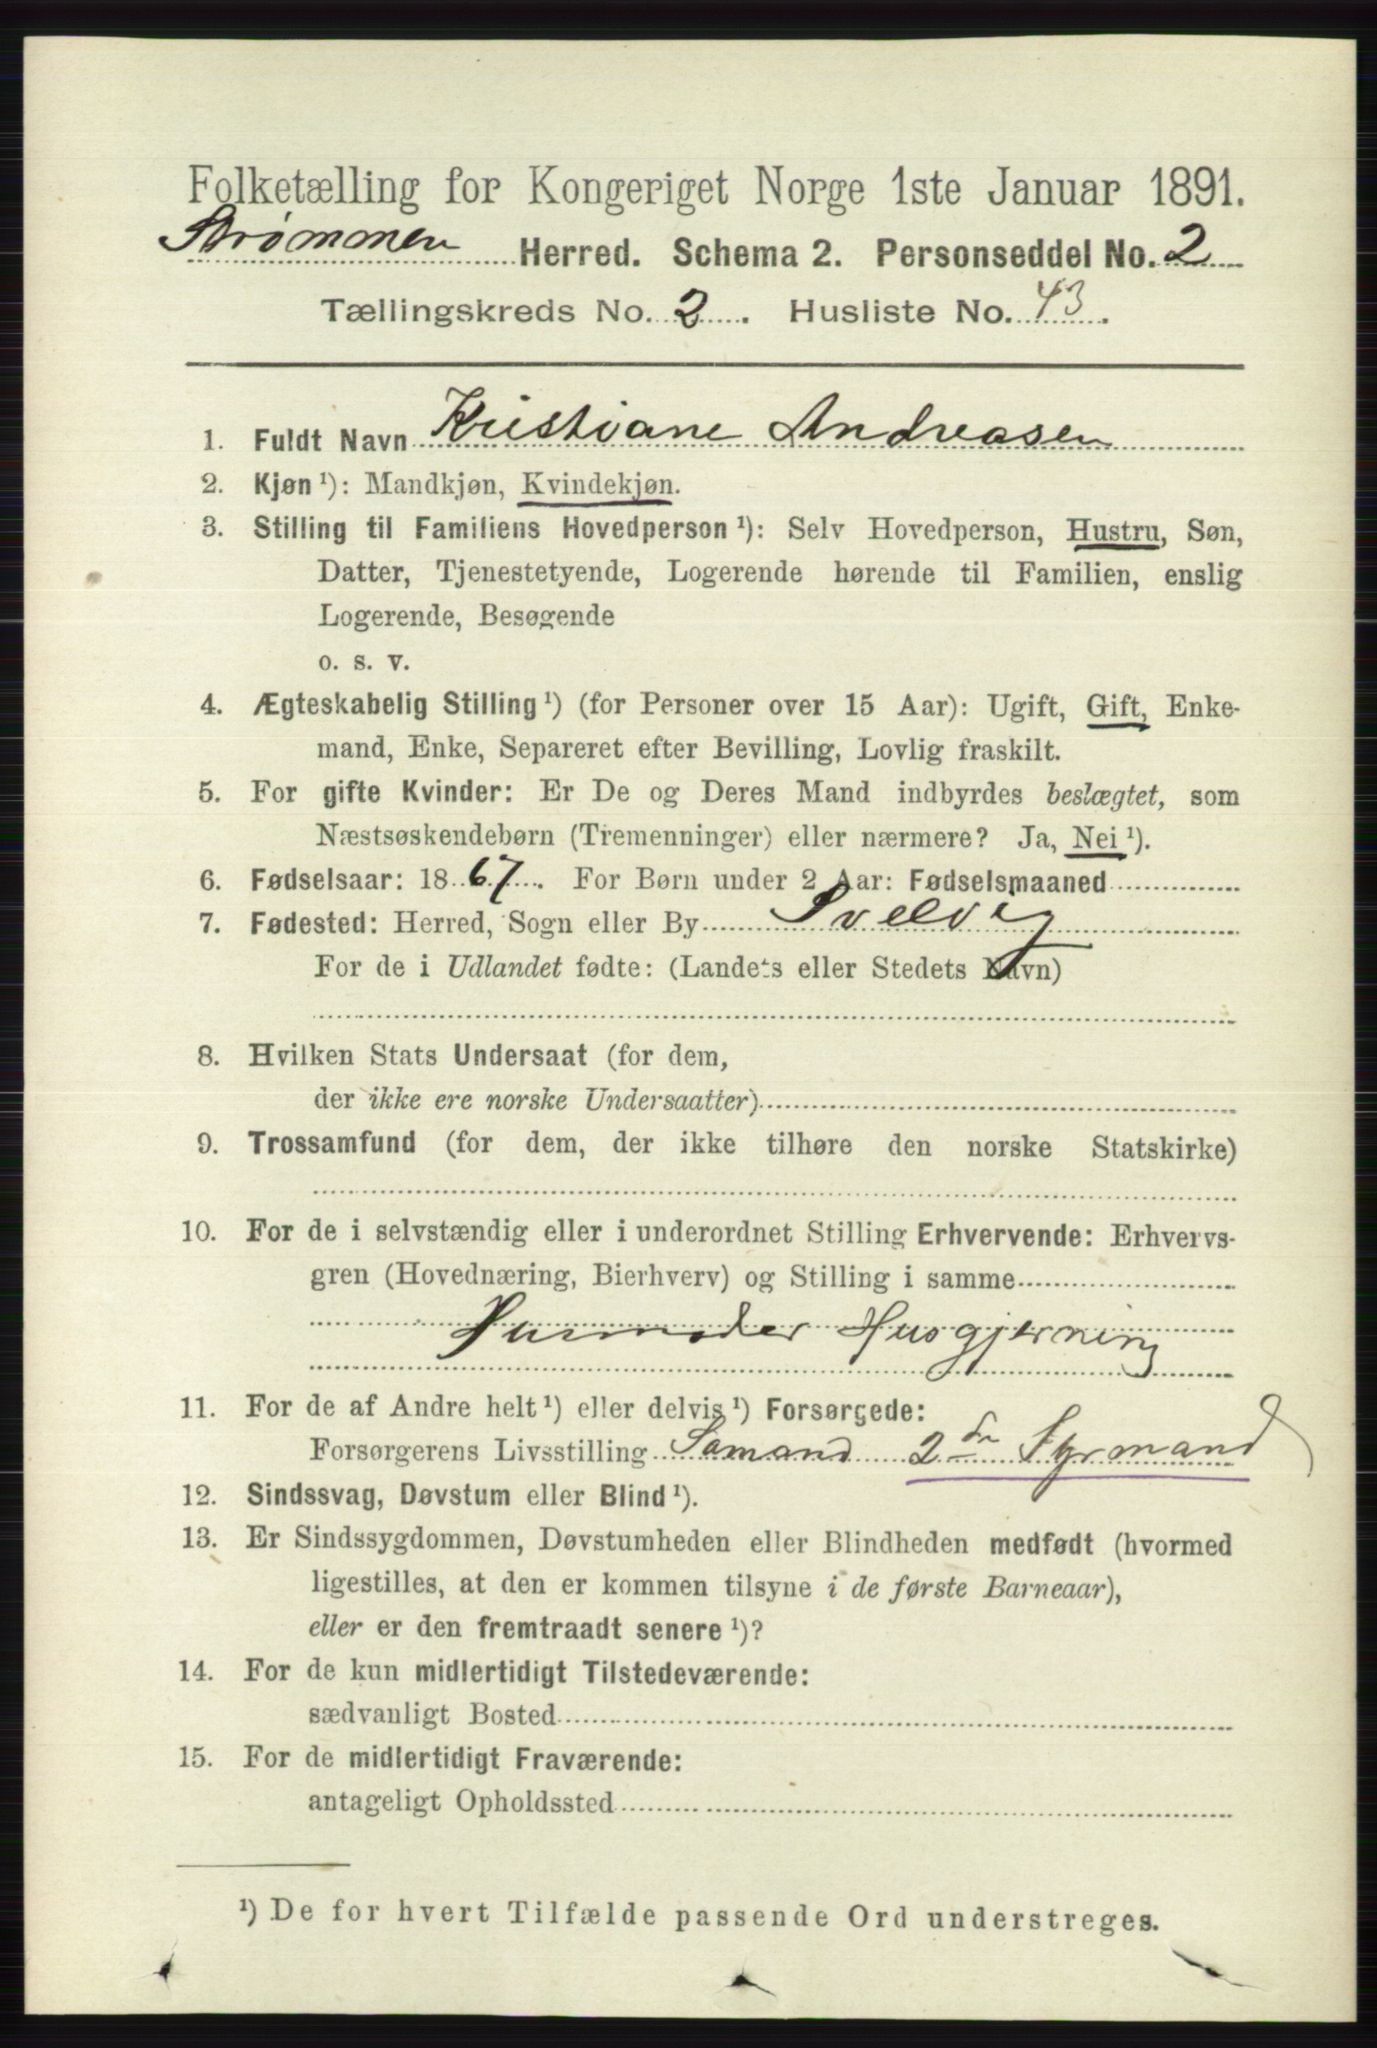 Folketælling for Kongeriget Norge 1ste Januar 1891.
Strømmen Herred. Schema 2. Personseddel No. 2
Tællingskreds No. 2. Husliste No. 43.
1. Fuldt Navn Kristiane Andreasen
2. Kjøn ¹): Mandkjøn, Kvindekjøn.
3. Stilling til Familiens Hovedperson ¹): Selv Hovedperson, Hustru, Søn,
Datter, Tjenestetyende, Logerende hørende til Familien, enslig
Logerende, Besøgende
o. s. v.
4. Ægteskabelig Stilling ¹) (for Personer over 15 Aar): Ugift, Gift, Enke-
mand, Enke, Separeret efter Bevilling, Lovlig fraskilt.
5. For gifte Kvinder: Er De og Deres Mand indbyrdes beslægtet, som
Næstsøskendebørn (Tremenninger) eller nærmere? Ja, Nei ¹).
6. Fødselsaar: 1867. For Børn under 2 Aar: Fødselsmaaned
7. Fødested: Herred, Sogn eller By Svelvig
For de i Udlandet fødte: (Landets eller Stedets Navn)
8. Hvilken Stats Undersaat (for dem,
der ikke ere norske Undersaatter)
9. Trossamfund (for dem, der ikke tilhøre den norske Statskirke)
10. For de i selvstændig eller i underordnet Stilling Erhvervende: Erhvervs-
gren (Hovednæring, Bierhverv) og Stilling i samme
Husmoder Husgjerning
11. For de af Andre helt ¹) eller delvis ¹) Forsørgede:
Forsørgerens Livsstilling Sømand 2den Styrmand
12. Sindssvag, Døvstum eller Blind ¹).
13. Er Sindssygdommen, Døvstumheden eller Blindheden medfødt (hvormed
ligestilles, at den er kommen tilsyne i de første Barneaar),
eller er den fremtraadt senere ¹)?
14. For de kun midlertidigt Tilstedeværende:
sædvanligt Bosted
15. For de midlertidigt Fraværende:
antageligt Opholdssted
¹) De for hvert Tilfælde passende Ord understreges.